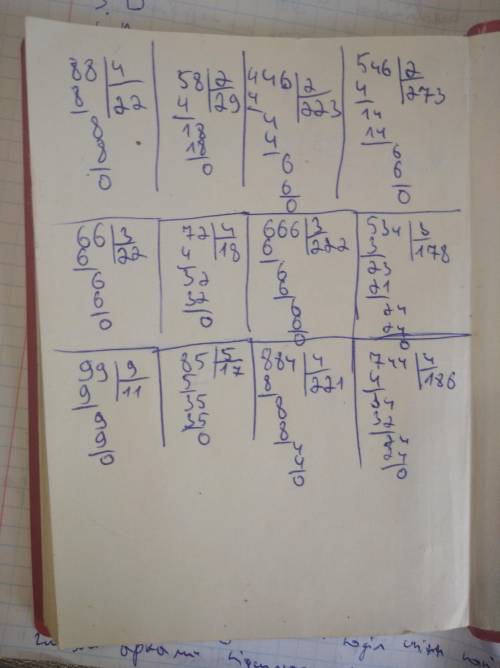 88 4
8 22
8
8
0
58 2
4 29
18
18
0
446 2
4 223
4
4
6
6
0
546 2
4 273
14
14
6
6
0
66 3
6 22
6
6
0
72 4
4 18
32
32
0
666 3
6 222
6
6
6
6
0
534 3
3 178
23
21
24
24
0
99 9
9 11
9
9
0
85 5
5 17
35
35
0
884 4
8 221
8
8
4
4
0
744 4
4 186
34
32
24
24
0